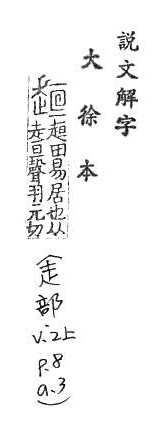 説文解字
大徐本
趄 趄田易居也从
走亘聲羽元切
(走部
v.2上
p.8
a.3)